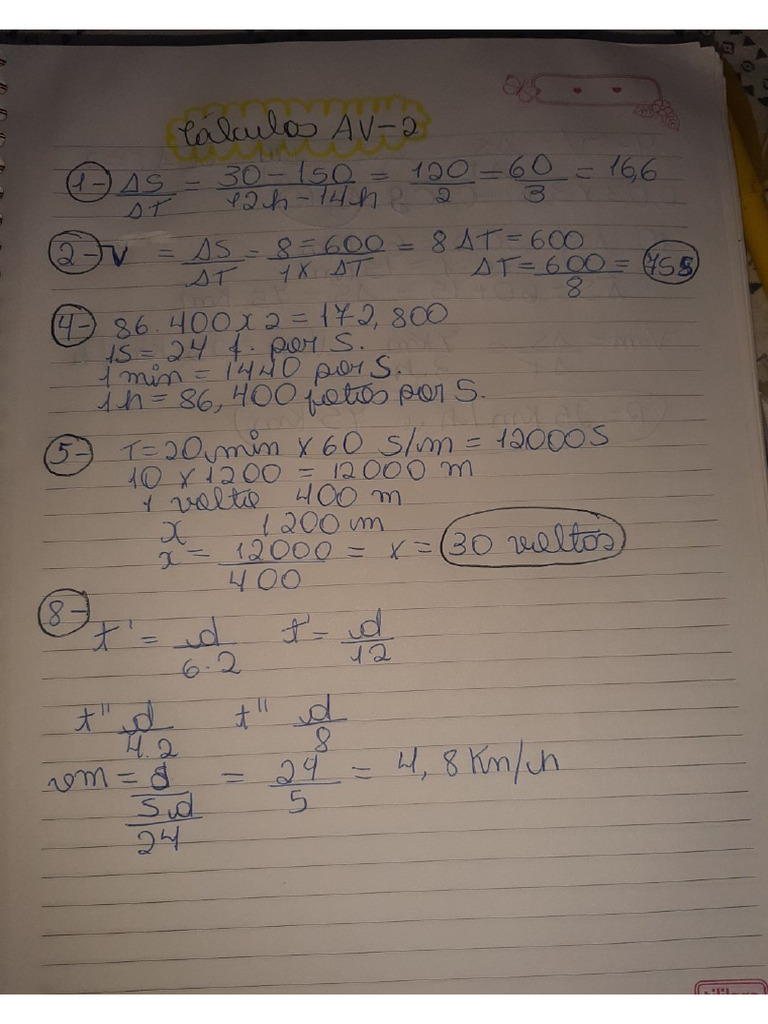 Cálculos AV-2
1- ΔS/ΔT = 30-150/12h-14h = 120/2 = 60/3 = 16,6
2- V = ΔS/ΔT = 8=600/1x ΔT = 8 ΔT = 600
ΔT = 600/8 = 75s
4- 86.400 x 2 = 172,800
1S = 24 f. por S.
1 min = 1440 por S.
1h = 86,400 fotos por S.
5- T=20 min x 60 S/m = 12000S
10 x 1200 = 12000 m
1 volta 400 m
x 1200m
x = 12000/400 = x = 30 voltas
8- t' = d/6.2 t' = d/12
t'' d/4.2 t'' d/8
vm = d/5d/24 = 24/5 = 4,8 Km/h